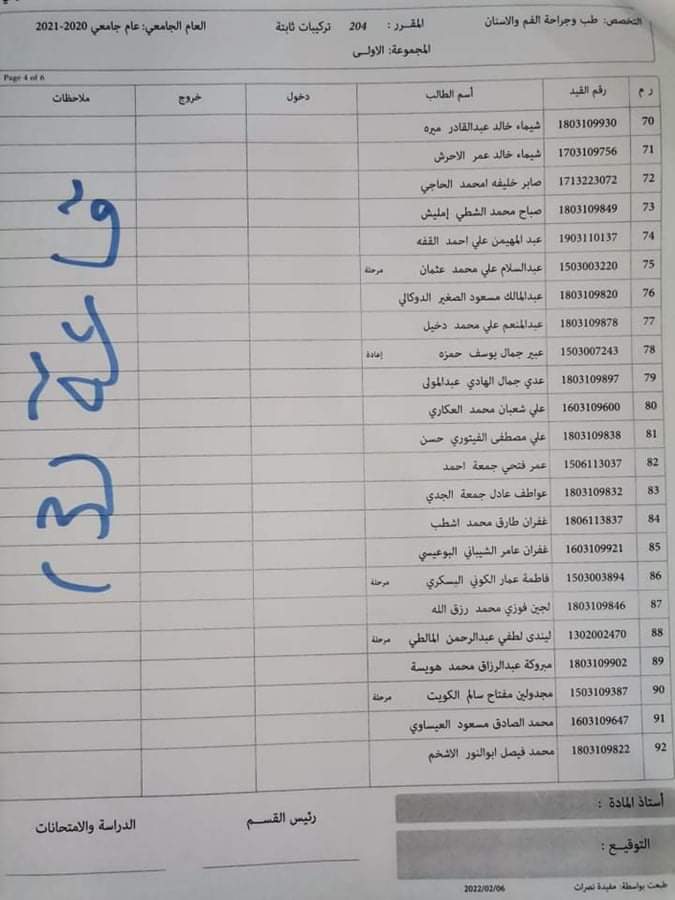 التخصص: طب وجراحة الفم والاسنان المقـرر : 204 تركيبات ثابتة العام الجامعي: عام جامعي 2020-2021
المجموعة: الاولـى
Page 4 of 6
ر م رقم القيد أسم الطالب دخول خروج ملاحظات
70 1803109930 شيماء خالد عبدالقادر ميره
71 1703109756 شيماء خالد عمر الاحرش
72 1713223072 صابر خليفه امحمد الحاجي
73 1803109849 صباح محمد الشطي إمليش
74 1903110137 عبد المهيمن علي احمد القفه
75 1503003220 عبدالسلام علي محمد عثمان مرحلة
76 1803109820 عبدالمالك مسعود الصغير الدوكالي
77 1803109878 عبدالمنعم علي محمد دخيل
78 1503007243 عبير جمال يوسف حمزه إعادة
79 1803109897 عدي جمال الهادي عبدالمولى
80 1603109600 علي شعبان محمد العكاري
81 1803109838 علي مصطفى الفيتوري حسن
82 1506113037 عمر فتحي جمعة احمد
83 1803109832 عواطف عادل جمعة الجدي
84 1806113837 غفران طارق محمد اشطب
85 1603109921 غفران عامر الشيباني البوعيسي
86 1503003894 فاطمة عمار الكوني اليسكري مرحلة
87 1803109846 لجين فوزي محمد رزق الله
88 1302002470 ليندى لطفي عبدالرحمن المالطي مرحلة
89 1803109902 مبروكة عبدالرزاق محمد هويسة
90 1503109387 مجدولين مفتاح سالم الكويت مرحلة
91 1603109647 محمد الصادق مسعود العيساوي
92 1803109822 محمد فيصل ابوالنور الاشخم
أستاذ المادة :
رئيس القســم
الدراسة والامتحانات
التوقيـع :
طبعت بواسطة: مفيدة نصرات 2022/02/06